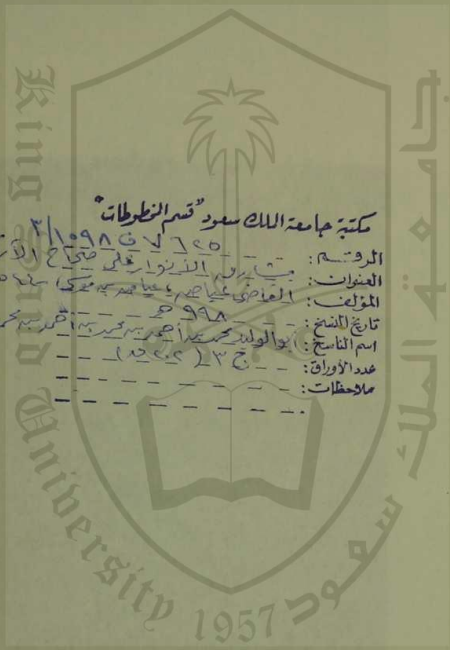 مكتبة جامعة الملك سعود "قسم المخطوطات"
الرقم: ٧٦٢٥ ف ١٠٩٨/٣
العنوان: مشارق الأنوار على صحاح الآ
المؤلف: القاضي عياض، عياض بن موسى
تاريخ النسخ: ٩٩٨ هـ
اسم الناسخ: أبو الوليد محمد بن أحمد بن محمد بن أحمد بن
عدد الأوراق: ج ٣ (٢٠٢ ق)
ملاحظات:
King Saud University
1957
جامعة الملك سعود